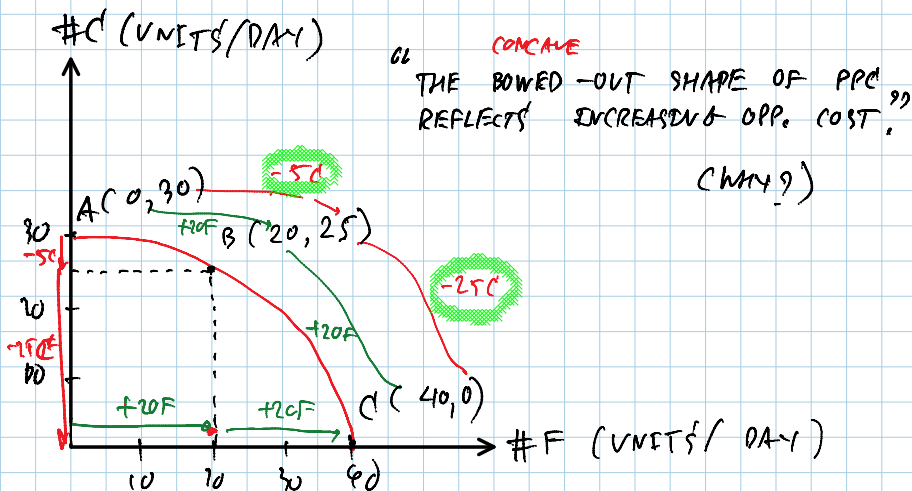 #C (UNITS/DAY)
CONCAVE
"THE BOWED-OUT SHAPE OF PPC
REFLECTS INCREASING OPP. COST."
(WHY?)
-5C
A(0,30)
+20F
B (20,25)
30
-5C
-25C
20
+20F
-25C
10
C (40,0)
+20F
+20F
#F (UNITS/ DAY)
10
20
30
40